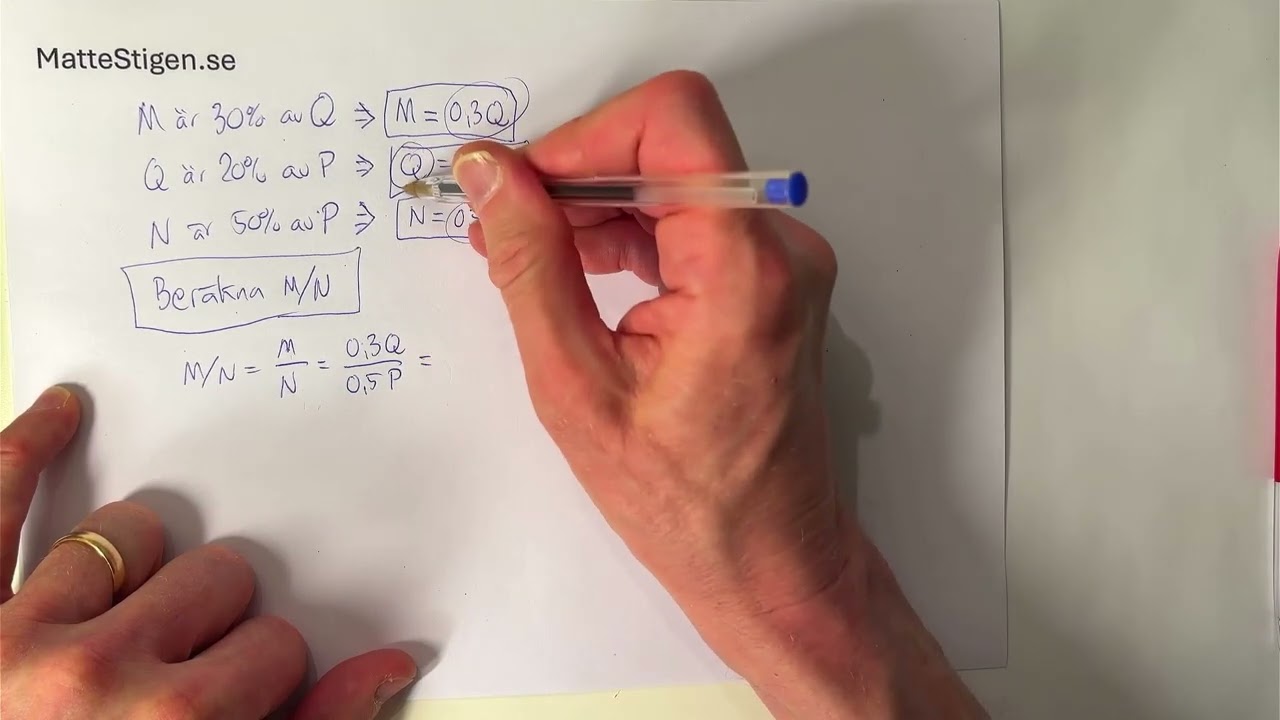 MatteStigen.se
M är 30% av Q ⇒ M = 0,3Q
Q är 20% av P ⇒ Q =
N är 50% av P ⇒ N = 0
Beräkna M/N
M/N = M/N = 0,3Q/0,5P =